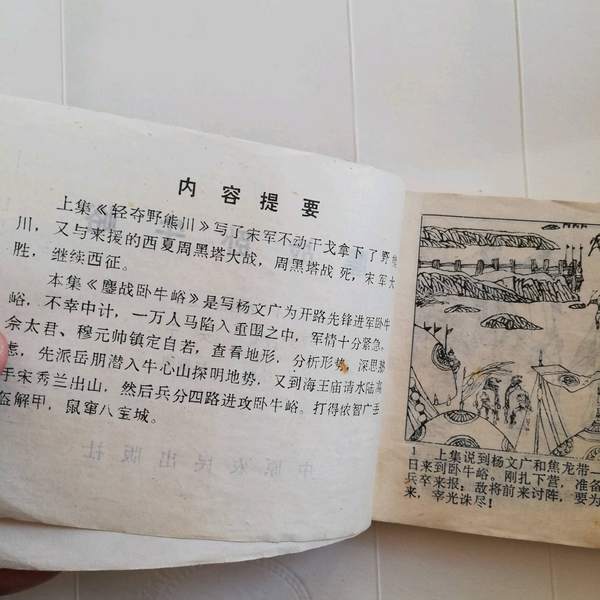 内容提要
上集《轻夺野熊川》写了宋军不动干戈拿下了野熊
川，又与来援的西夏周黑塔大战，周黑塔战死，宋军大
胜，继续西征。
本集《鏖战卧牛峪》是写杨文广为开路先锋进军卧牛
峪，不幸中计，一万人马陷入重围之中，军情十分紧急。
佘太君、穆元帅镇定自若，查看地形，分析形势，深思熟
虑，先派岳朋潜入牛心山探明地势，又到海王庙请水陆高
手宋秀兰出山，然后兵分四路进攻卧牛峪。打得侬智广丢
盔解甲，鼠窜八宝城。
中原农民出版社
1 上集说到杨文广和焦龙带一
日来到卧牛峪。刚扎下营，准备
兵卒来报：敌将前来讨阵，要为
来，幸光诛尽！